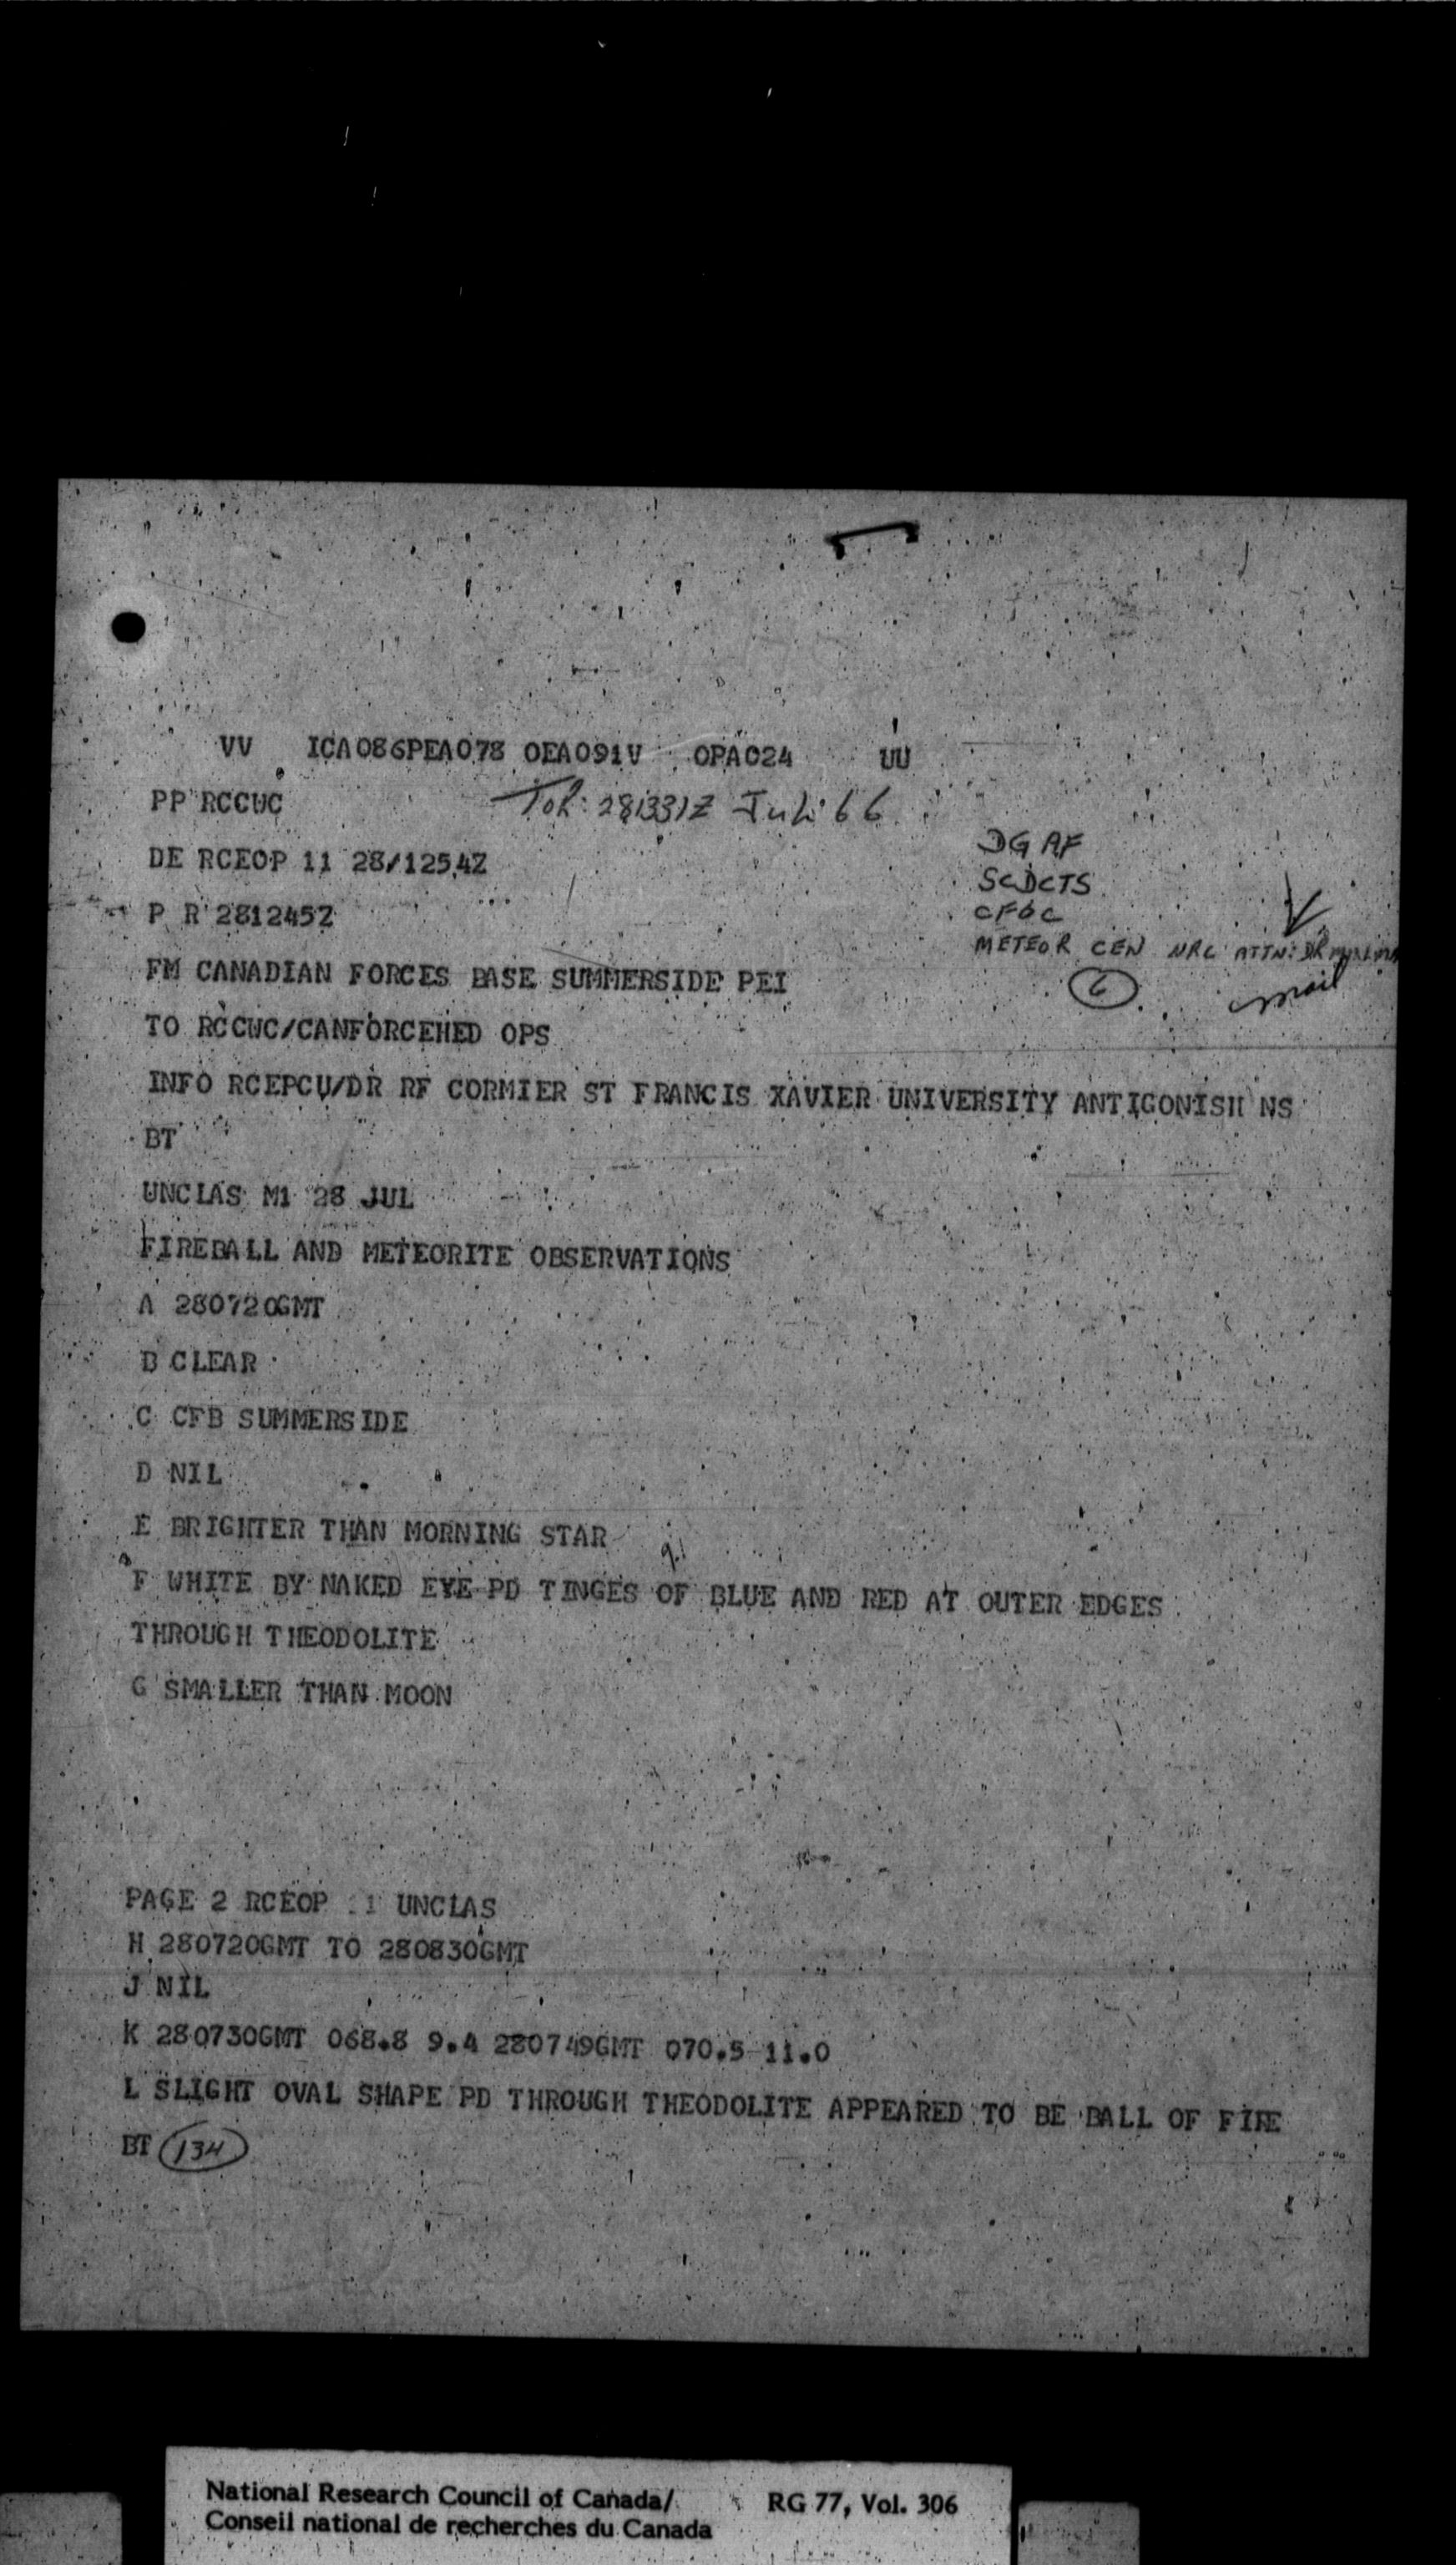 VV ICA086PEA078 OEA091V OPA024 UU
PP RCCWC
TOR: 281331Z July 66
DE RCEOP 11 28/1254Z
DG AF
P R 281245Z
CFOC
METEOR CEN NRC ATTN: DR
FM CANADIAN FORCES BASE SUMMERSIDE PEI
6
mail
TO RCCWC/CANFORCEHED OPS
INFO RCEPCU/DR RF CORMIER ST FRANCIS XAVIER UNIVERSITY ANTIGONISH NS
BT
UNCLAS M1 28 JUL
FIREBALL AND METEORITE OBSERVATIONS
A 280720GMT
B CLEAR
C CFB SUMMERSIDE
D NIL
E BRIGHTER THAN MORNING STAR
F WHITE BY NAKED EYE PD TINGES OF BLUE AND RED AT OUTER EDGES
THROUGH THEODOLITE
G SMALLER THAN MOON
PAGE 2 RCEOP 11 UNCLAS
H 280720GMT TO 280830GMT
J NIL
K 280730GMT 068.8 9.4 280749GMT 070.5 11.0
L SLIGHT OVAL SHAPE PD THROUGH THEODOLITE APPEARED TO BE BALL OF FIRE
BT 134
National Research Council of Canada/ RG 77, Vol. 306
Conseil national de recherches du Canada